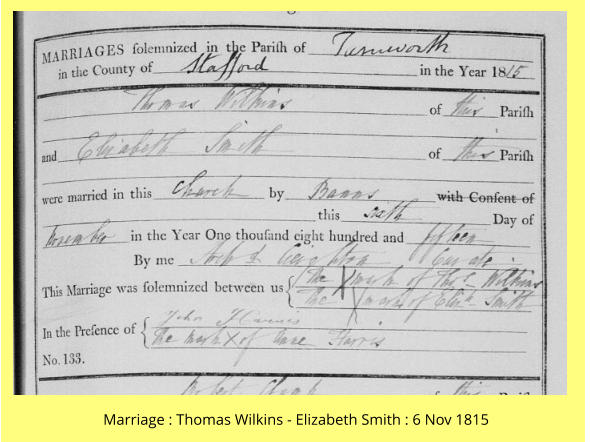 MARRIAGES solemnized in the Parish of Tamworth
in the County of Stafford in the Year 1815
Thomas Wilkins of this Parish
and Elizabeth Smith of this Parish
were married in this Church by Banns with Consent of
this sixth Day of
November in the Year One thousand eight hundred and fifteen
By me Curate
This Marriage was solemnized between us { the X mark of Thos Wilkins
the X mark of Elizth Smith
In the Presence of { John Harris
the mark X of Anne Harris
No. 133.
this Parish
Marriage : Thomas Wilkins - Elizabeth Smith : 6 Nov 1815